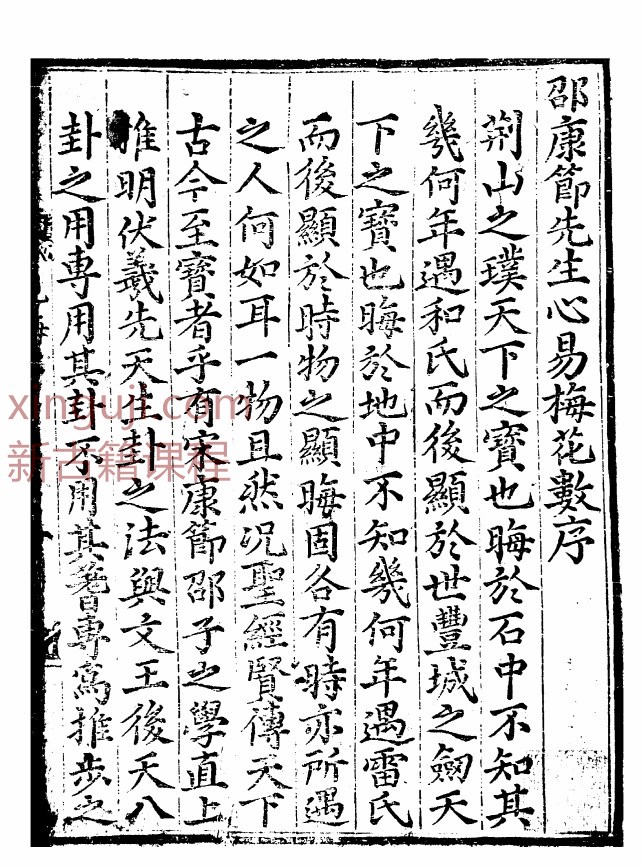 邵康節先生心易梅花數序
荆山之璞天下之寶也晦於石中不知其
幾何年遇和氏而後顯於世豐城之劒天
下之寶也晦於地中不知幾何年遇雷氏
而後顯於時物之顯晦固各有時亦所遇
之人何如耳一物且然况聖經賢傳天下
古今至寶者乎有宋康節邵子之學直上
推明伏羲先天生卦之法與文王後天八
卦之用專用其卦不用其蓍專爲推步之
xinguji.com
新古籍课程